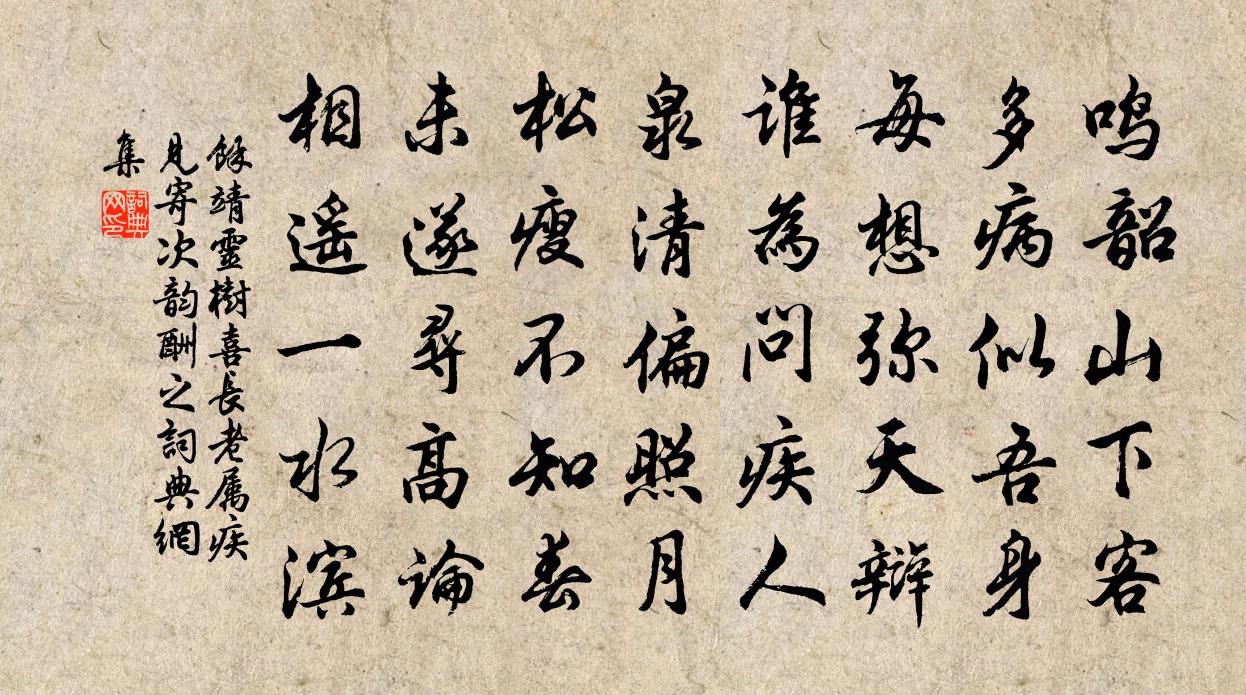 鸣韶山下客
多病似吾身
每想弥天辩
谁為问疾人
泉清偏照月
松瘦不知春
未遂尋高論
相遥一水滨
餘靖靈樹喜長老属疾
見寄次韵酬之詞典網
集
詞典
网印